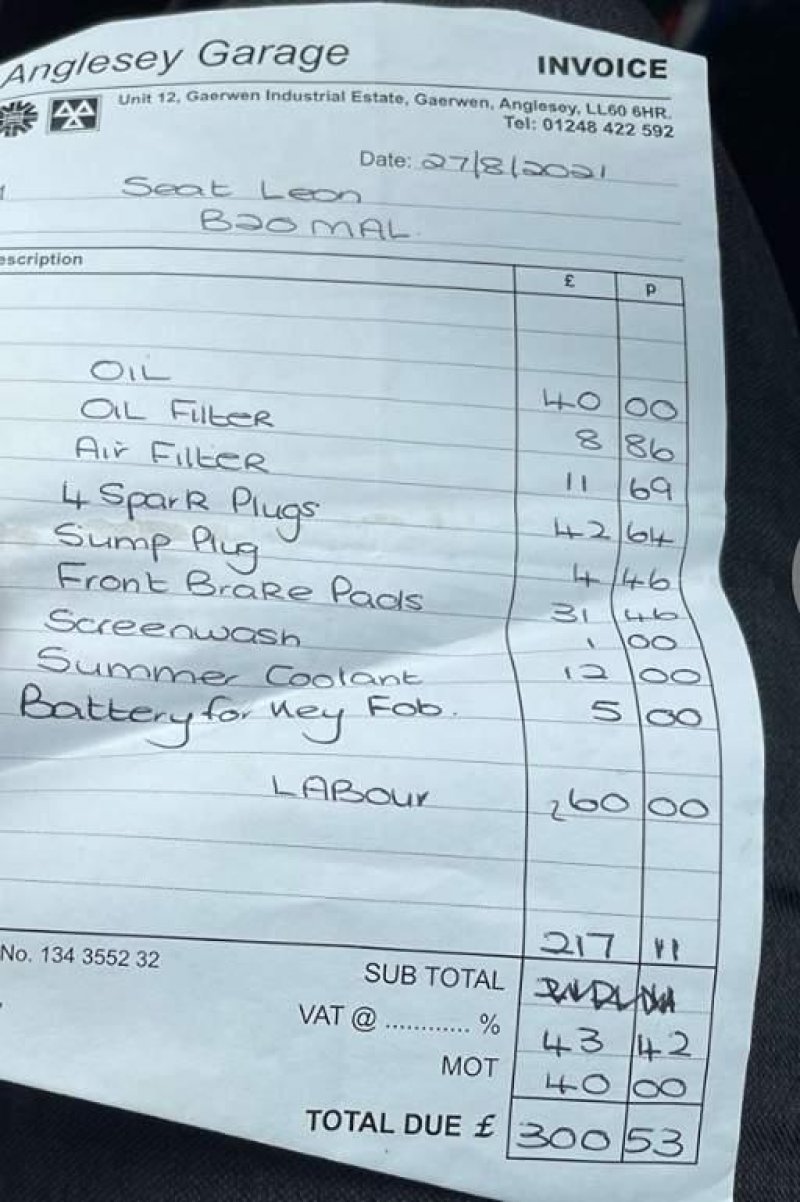 Anglesey Garage INVOICE
Unit 12, Gaerwen Industrial Estate, Gaerwen, Anglesey, LL60 6HR.
Tel: 01248 422 592
Date: 27/8/2021
Seat Leon
B20 MAL.
escription £ p
OIL 40 00
OIL FILTER 8 86
Air FILTER 11 69
4 Spark Plugs 42 64
Sump Plug 4 46
Front Brake Pads 31 46
Screenwash 1 00
Summer Coolant 12 00
Battery for Key Fob. 5 00
LABour 60 00
217 11
No. 134 3552 32
SUB TOTAL
VAT @ ............ % 43 42
MOT 40 00
TOTAL DUE £ 300 53